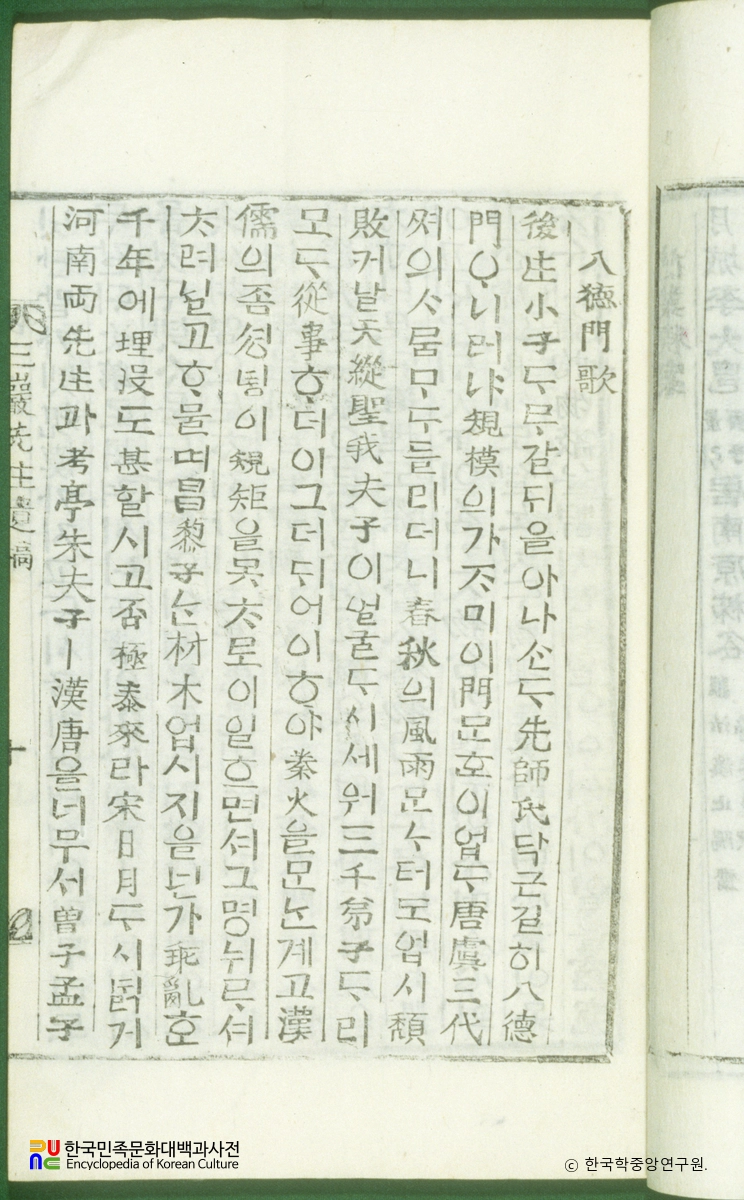 八德門歌
後生小子ᄃᆞᄅᆞ갈뒤을아나ᄉᆞᆫᄃᆞ先師氏닥근길히八德
門ᄋᆞ니러냐規模의가ᄌᆞ미이門문호이업ᄃᆞ唐虞三代
쎠의ᄉᆞᄅᆞᆷᄆᆞᄃᆞ들미더니春秋의風雨ᄆᆞᆫᄂᆞ터도업시頹
敗커날天縱聖我夫子이얼굴ᄃᆞ시세워三千弟子ᄃᆞ리
모ᄃᆞ從事ᄒᆞ더이그더뒤어이ᄒᆞ야秦火을ᄆᆞᆫᄂᆞᆫ계고漢
儒의좀이規矩을못ᄎᆞ로이일흐면셔그명뉘ᄅᆞ셔
ᄎᆞ려닐고ᄒᆞ물며昌黎子ᄂᆞᆫ材木업시지을넌가乖亂호
千年에埋沒도甚할시고否極泰來라宋日月ᄃᆞ시ᄇᆞᆰ거
河南両先生과考亭朱夫子ㅣ漢唐을너무서曾子孟子
三巖先生遺稿
十
한국민족문화대백과사전
Encyclopedia of Korean Culture
© 한국학중앙연구원.